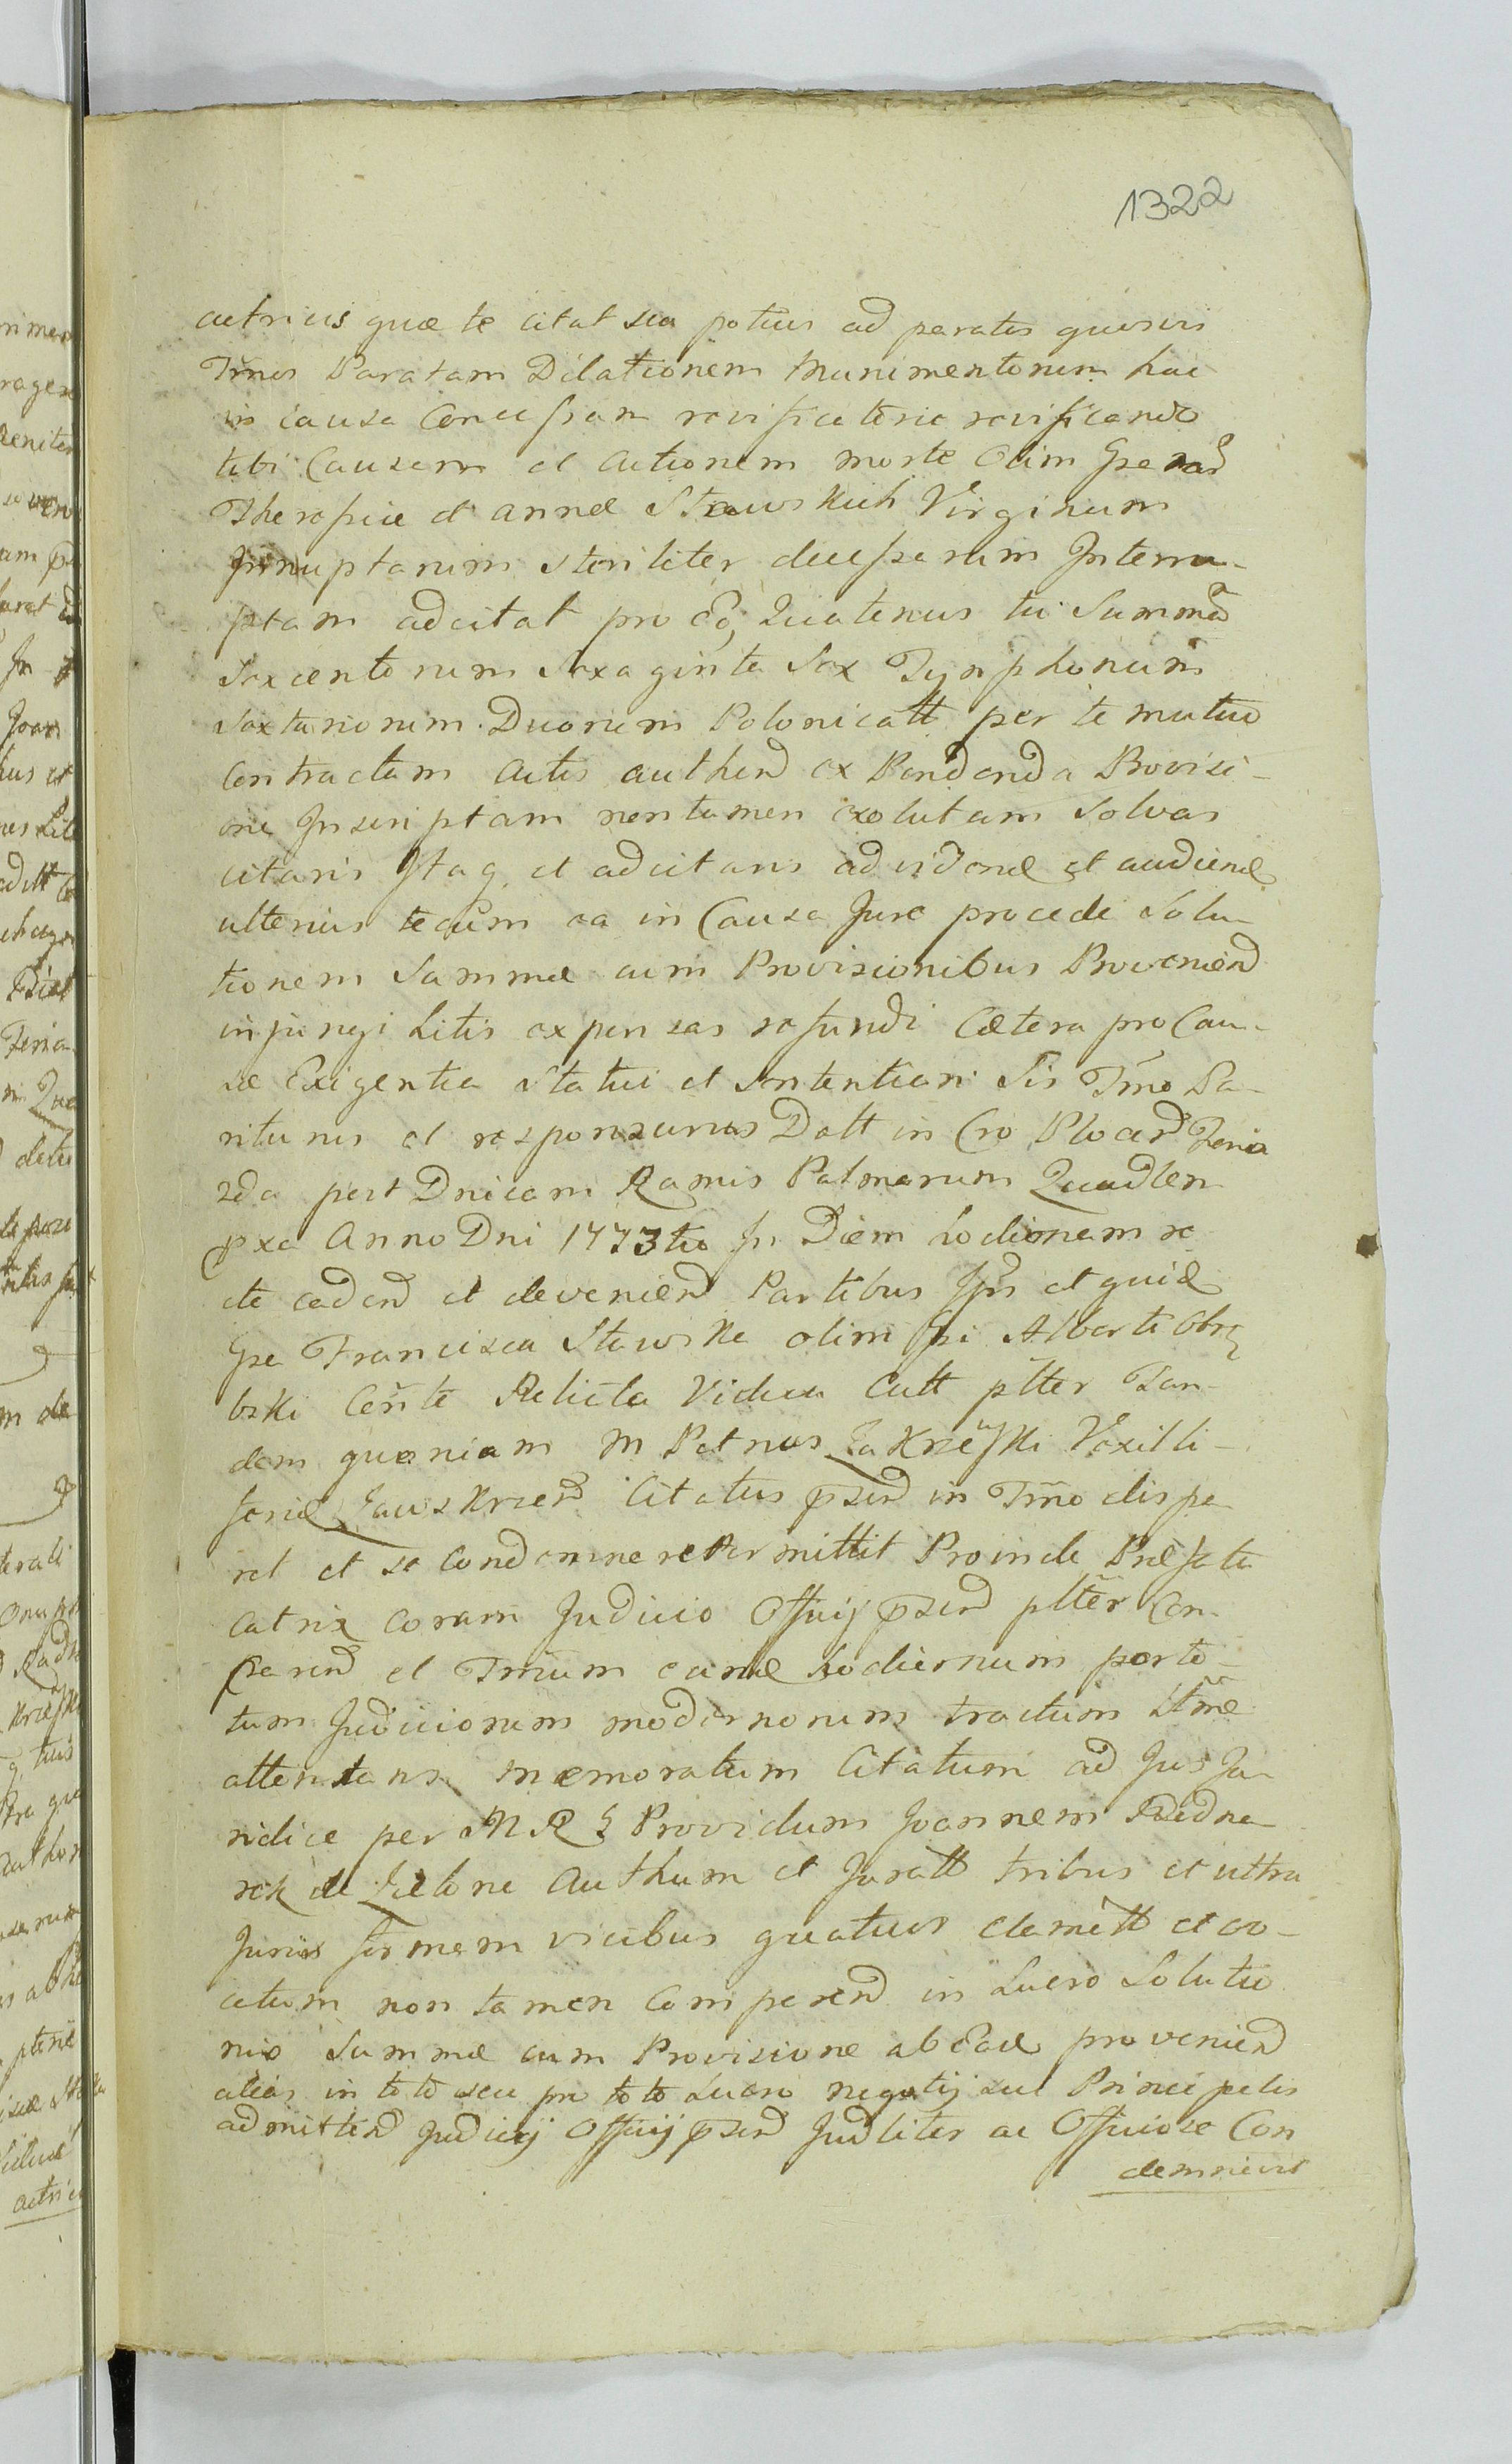 1322
actricis quæ te citat seu potius ad paratas quosvis
Tr̃nos Paratam Dilationem Munimentorum hac
in causa Concessam revificatorie revificando
tibi Causam et Actionem morte Olim Grãrũ
Theresiæ et Annæ Stawskich Virginum
Innuptarum steriliter decessarum Interru-
ptam adcitat pro Eo, Quatenus tu Summã
Sexcentorum Sexaginta Sex Tynphonum
Sextarionum Duorum Polonicatt per te mutuo
Contractam Actis authend ex Pendenda Provisi-
one Inscriptam non tamen exolutam Solvas
citaris Itaq, et adcitaris ad vidend et audiend
ulterius tecum ea in Causa Jure procedi Solu-
tionem Summæ cum Provisionibus Proveniend
injungi Litis expensas refundi Cætera pro Cau-
sæ Exigentia Statui et Sententiari Sis Tr̃no Pa-
riturus et responsurus Datt in Cro Plocen Feria
2da post Dnicam Ramis Palmarum Quadlem
pxa Anno Dni 1773tio In Diem hodiernam se
ite cadend et deveniend Partibus Ipis et quid
Gsa Francisca Stawska olim Gsi Alberti Obrę
bski Cen̄te Relicta Vidua Cutt pl̃ter Tan-
dem quoniam M Petrus Zakrzewski Vexilli-
feriæ Zawskrzen Citatus p̃send in Tr̃no dispa
ret et se Condemnare Permittit Proinde Præfata
Catrix coram Judicio Officij p̃send pl̃ter Con-
parend et Tr̃num eund hodiernum per to-
tum Judiciorum modernorum tractum Lt̃me
attentans memoratum Citatum ad Jus Ju-
ridice per M R G Providum Joannem Bedna
rek de Zielona Authum et Juratt tribus et ultra
Juris formam vicibus quatuor clamatt et vo-
catum non tamen Comparend in Lucro Solutio
nis Summæ cum Provisione ab Ead proveniend
alias in toto seu pro toto Lucro negotij sui Principalis
admittend Judicij Officij p̃send Judliter ac Officiose Con
demnavit